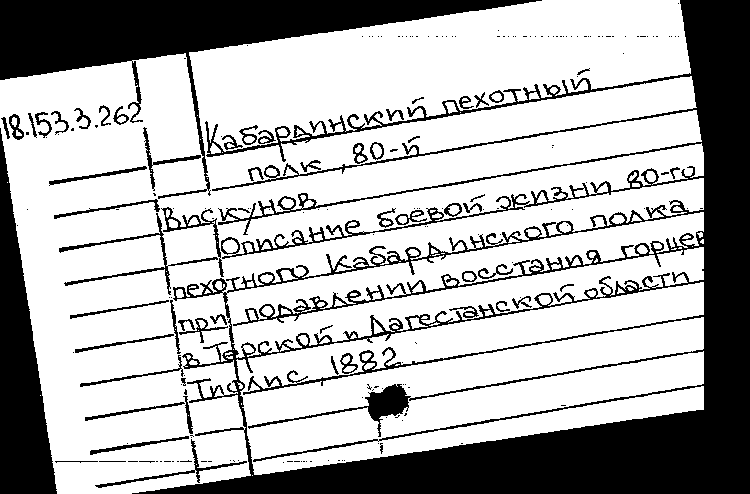 18.153.3.262
Кабардинский пехотный
полк, 80-й
Вискунов
Описание боевой жизни 80-го
пехотного Кабардинского полка
при подавлении восстания горцев
в Терской и Дагестанской области
Тифлис, 1882.